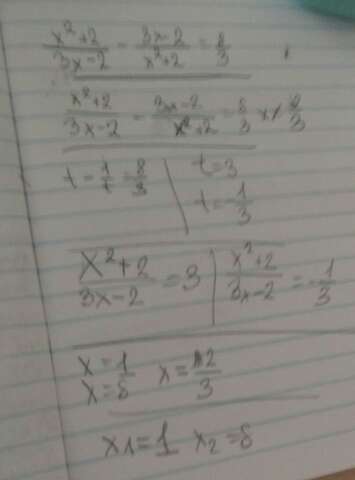 x²+2/3x-2 - 3x-2/x²+2 = 8/3
x²+2/3x-2 - 3x-2/x²+2 = 8/3
t - 1/t = 8/3 | t=3
t=-1/3
x²+2/3x-2 = 3 | x²+2/3x-2 = -1/3
x=1
x=8 x=12/3
x1=1 x2=8